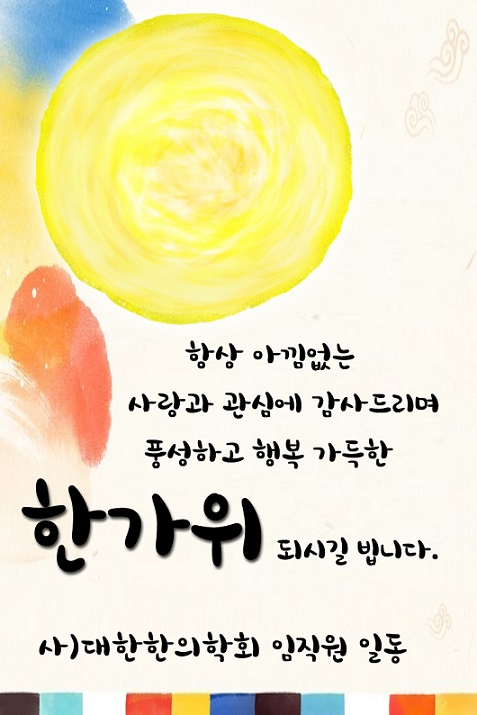 항상 아낌없는
사랑과 관심에 감사드리며
풍성하고 행복 가득한
한가위 되시길 빕니다.
사)대한한의학회 임직원 일동